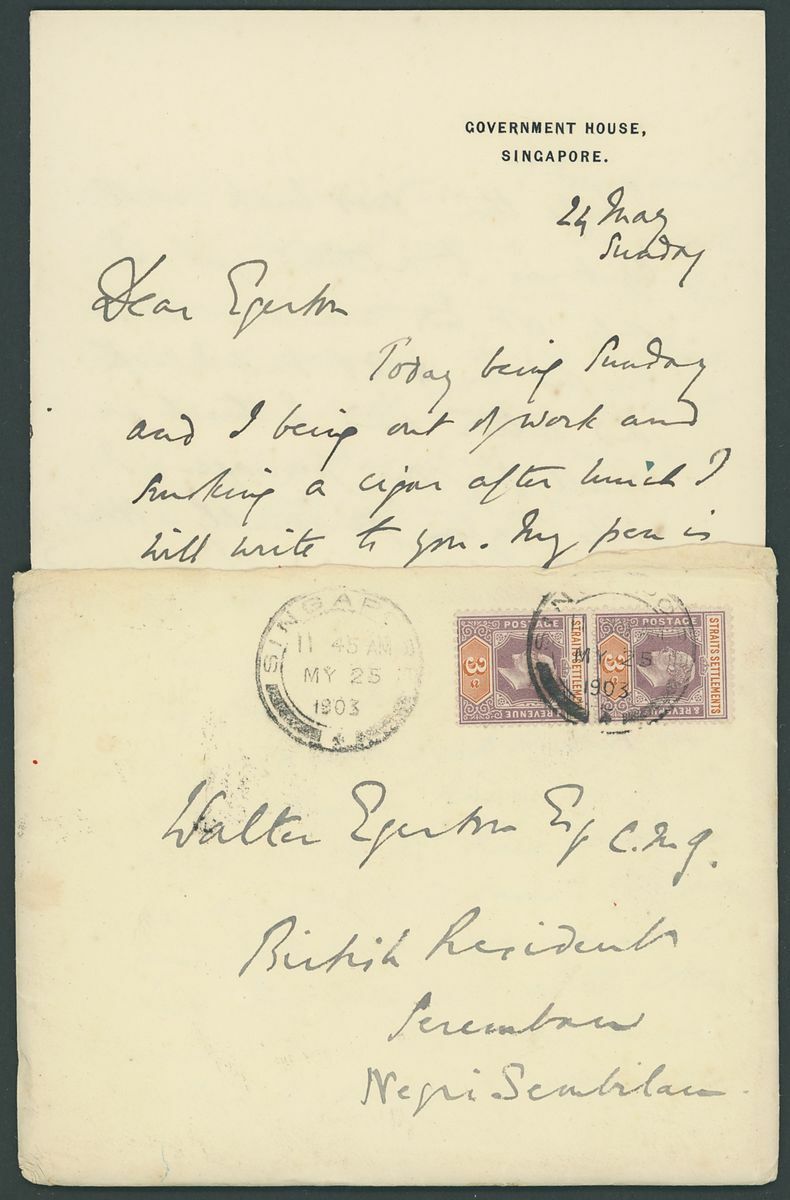 GOVERNMENT HOUSE,
SINGAPORE.
24 May
Sunday
Dear Egerton
Today being Sunday
and I being out of work and
smoking a cigar after lunch I
will write to you. My pen is
SINGAP
11 45 AM
MY 25
1903
POSTAGE
3c
STRAITS SETTLEMENTS
& REVENUE
POSTAGE
3c
STRAITS SETTLEMENTS
& REVENUE
MY 25
1903
Walter Egerton Esq C.M.G.
British Resident
Seremban
Negri Sembilan